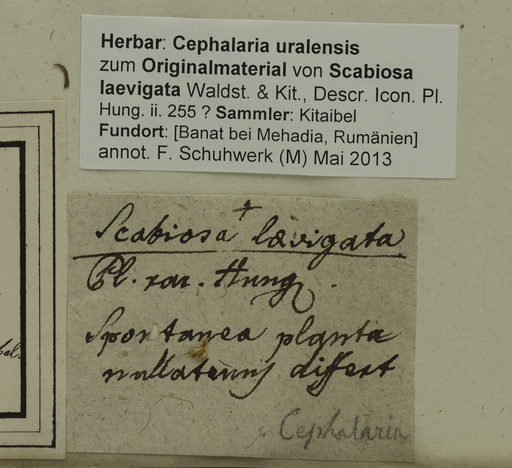 Herbar: Cephalaria uralensis
zum Originalmaterial von Scabiosa
laevigata Waldst. & Kit., Descr. Icon. Pl.
Hung. ii. 255 ? Sammler: Kitaibel
Fundort: [Banat bei Mehadia, Rumänien]
annot. F. Schuhwerk (M) Mai 2013
Scabiosa + lævigata.
Pl. rar. Hung.
Spontanea planta
nullatenus differt
Cephalaria